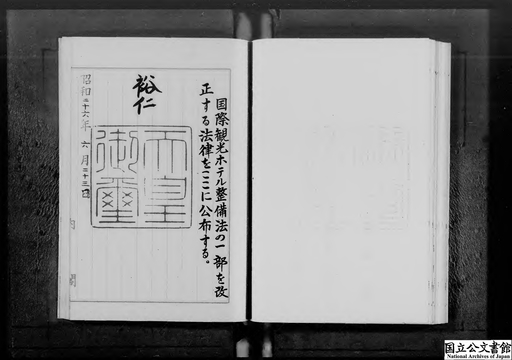 国際観光ホテル整備法の一部を改
正する法律をここに公布する。
裕仁
天皇
御璽
昭和二十六年六月二十三日
内閣
国立公文書館
National Archives of Japan